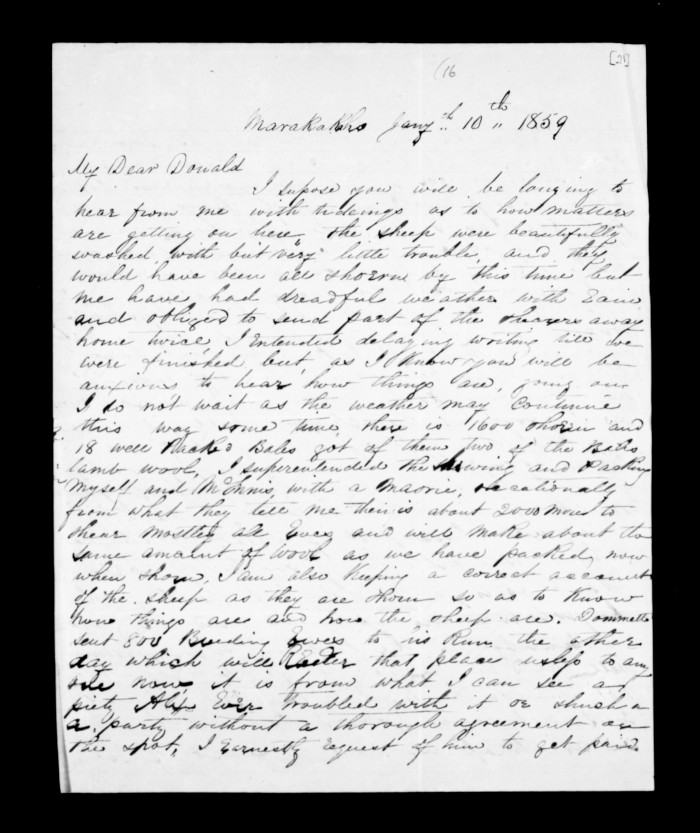 [21]
(16
Marakakho Jany 10th 1859
My Dear Donald
I supose you will be longing to
hear from me with tideings as to how matters
are getting on here, the sheep were beautifully
washed with but very little trouble, and they
would have been all shorne by this time but
we have had dreadful weather with Rain
and obliged to send part of the shearers away
home twice, I Entended delaying writing till we
were finished but as I Know you will be
anxious to hear how things are going on
I do not wait as the weather may continue
this way some time, there is 1600 shorn and
18 well Packed Bales got of them two of the Bales
lamb wool, I superentended the and Packing
Myself and McInnis, with a maorie, ocationally
from what they tell me their is about 2000 more to
shear mostley all Ewes and will make about the
same amount of wool as we have packed, now
when shorn, I am also Keeping a corect account
of the sheep as they are shorn so as to Know
how things are and how the sheep are. Dommett
sent 800 Breeding Ewes to is Run the other
day which will that place usless to any
one now, it is from what I can see a
piety Alex Ever troubled with it or such a
a party without a thorough agreement on
the spot, I Earnestly request of him to get paid